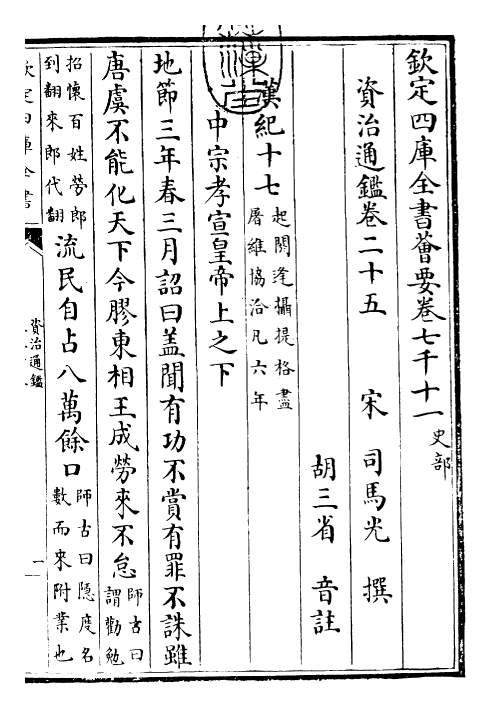 欽定四庫全書薈要卷七千十一 史部
資治通鑑卷二十五 宋 司馬光 撰
胡三省 音註
漢紀十七 起閼逢攝提格盡屠維協洽凡六年
中宗孝宣皇帝上之下
地節三年春三月詔曰盖聞有功不賞有罪不誅雖
唐虞不能化天下今膠東相王成勞來不怠 師古曰謂勸勉
招懷百姓勞郎到翻來郎代翻 流民自占八萬餘口 師古曰隠度名數而來附業也
欽定四庫全書
資治通鑑
一